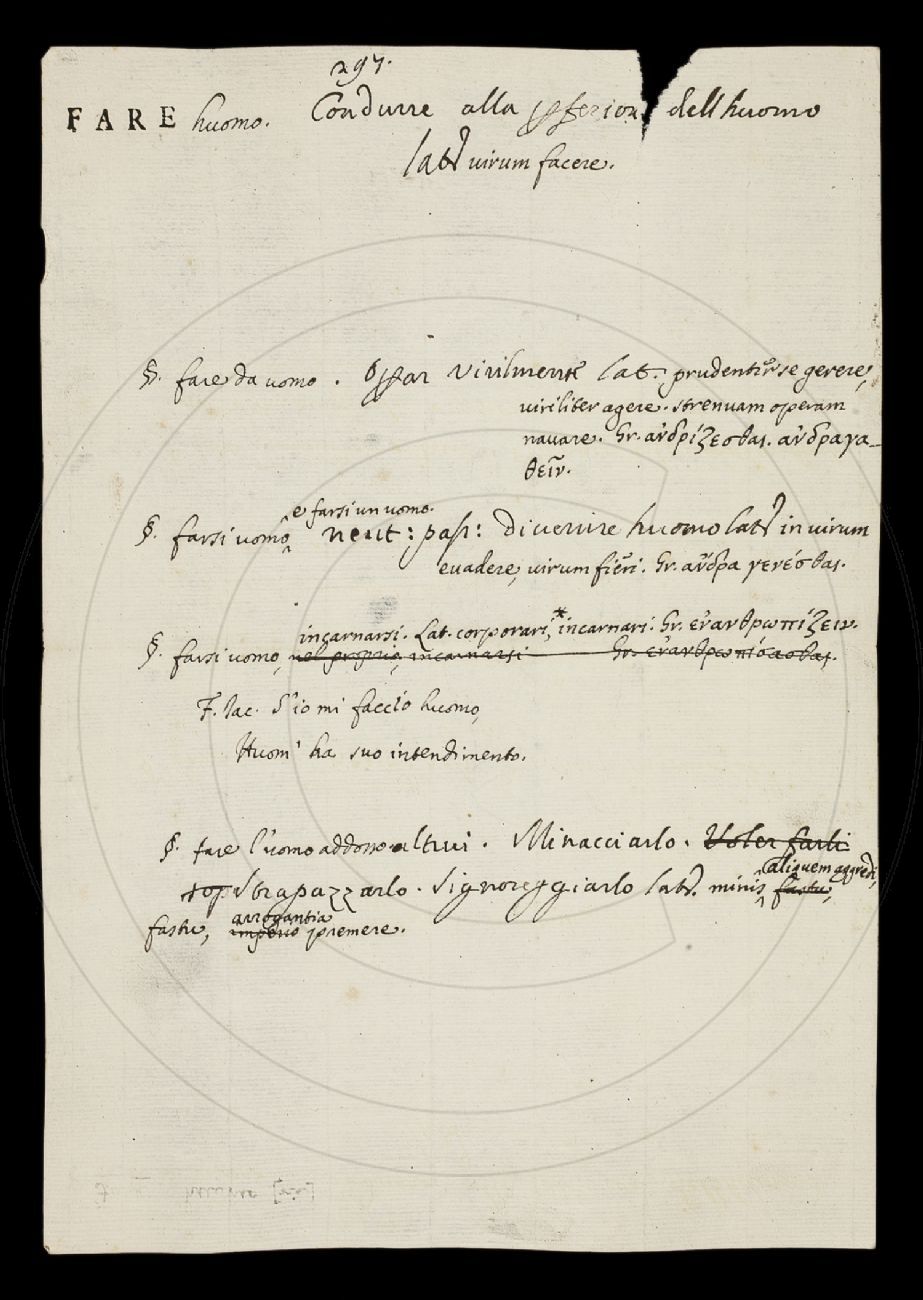 297.
FARE huomo. Condurre alla pfezion dell huomo
lat. virum facere.
§. fare da uomo. Opar virilmente lat. prudenter se gerere,
viriliter agere. strenuam operam
navare. Gr. ἀνδρίζεσθαι. ἀνδραγα-
θεῖν.
e farsi un uomo.
§. farsi uomo, neut: pass: Divenire huomo lat. in virum
evadere, virum fieri. Gr. ἄνδρα γενέσθαι.
incarnarsi. Lat. corporari,* incarnari. Gr. ἐνανθρωπίζειν.
§. farsi uomo, nel proprio, incarnarsi Gr. ἐνανθρωπιόασθαι.
F. Iac. S'io mi faccio huomo,
Huom' ha suo intendimento.
§. fare l'uomo addosso altrui. Minacciarlo. Voler farli
aliquem aggredi,
sop Strapazzarlo. Signoreggiarlo lat. minis, fastu,
arrogantia
fastu, imperio premere.